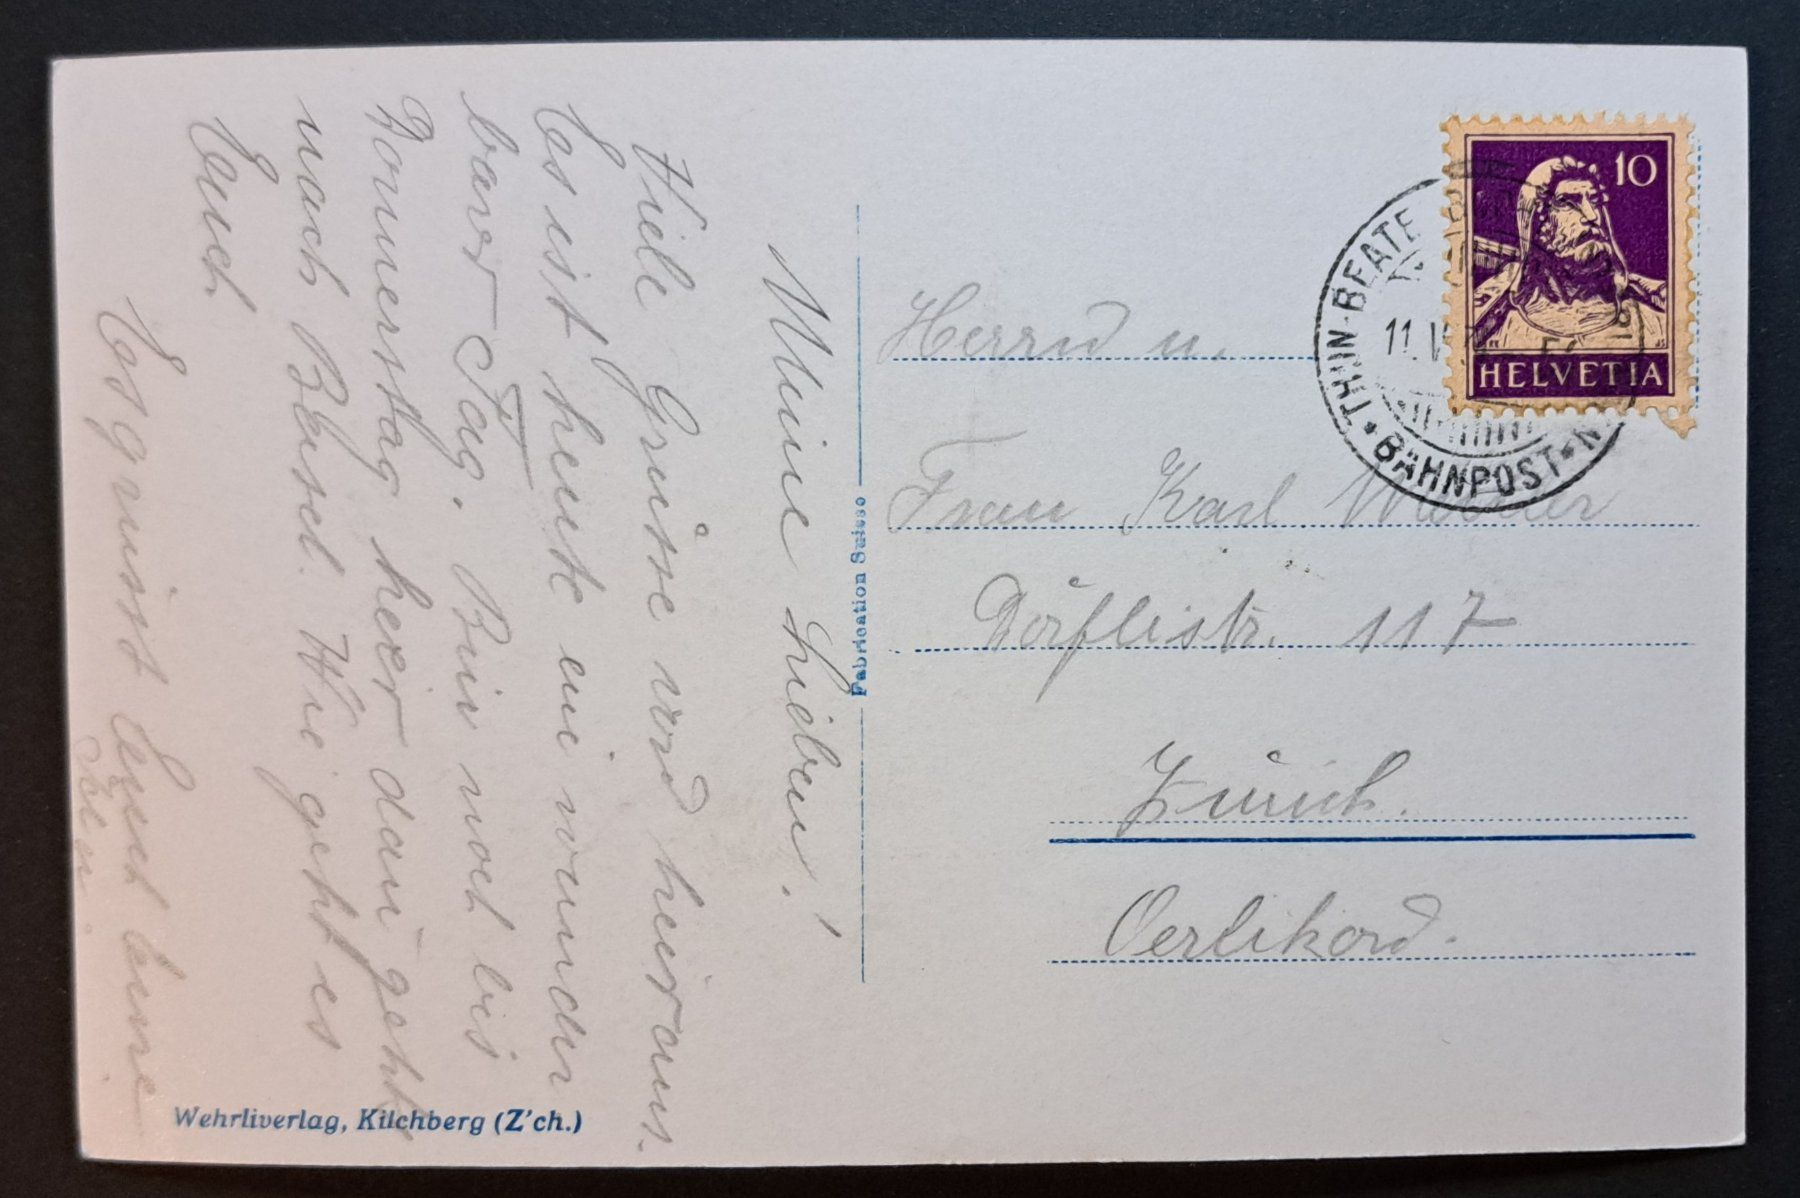 Meine Lieben!
Viele Grüsse von hier aus.
Es ist heute ein wunder
barer Tag. Bin noch bis
Donnerstag hier dan geht
nach Basel. Wie geht es
Euch
Es grüsst Euch eure
Herrn u.
Frau Karl
Dörflistr. 117
Zürich.
Oerlikon.
10
HELVETIA
THUN-BEATE
11.V
BAHNPOST
Fabrication Suisse
Wehrliverlag, Kilchberg (Z'ch.)